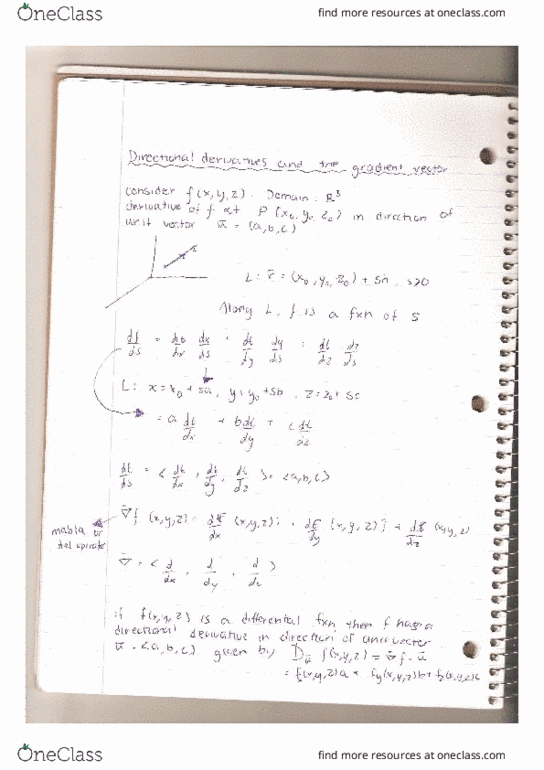 OneClass find more resources at oneclass.com
Directional derivatives and the gradient vector
consider f(x,y,z). Domain: R³
derivative of f at P(x₀,y₀,z₀) in direction of
unit vector u = (a,b,c)
L
L: r = (x₀,y₀,z₀) + su, s≥0
Along L, f is a fxn of s
df/ds = df/dx dx/ds + df/dy dy/ds + df/dz dz/ds
L: x = x₀ + sa, y = y₀ + sb, z = z₀ + sc
= a df/dx + b df/dy + c df/dz
df/ds = < df/dx, df/dy, df/dz > · <a,b,c>
∇f (x,y,z) = df/dx (x,y,z) i + df/dy (x,y,z) j + df/dz (x,y,z)
nabla or
del operator
∇ = < d/dx, d/dy, d/dz >
if f(x,y,z) is a differential fxn then f has a
directional derivative in direction of unit vector
u = <a,b,c> given by D_u f(x,y,z) = ∇f · u
= fx(x,y,z)a + fy(x,y,z)b + fz(x,y,z)c
OneClass find more resources at oneclass.com